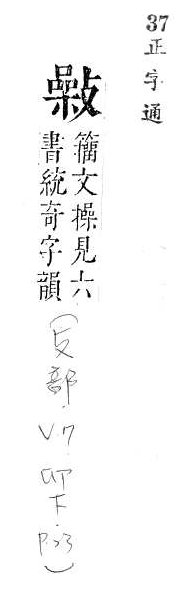 37 正字通
籀文操見六
書統奇字韻
(攴部. V.7. 卯下. P.23)